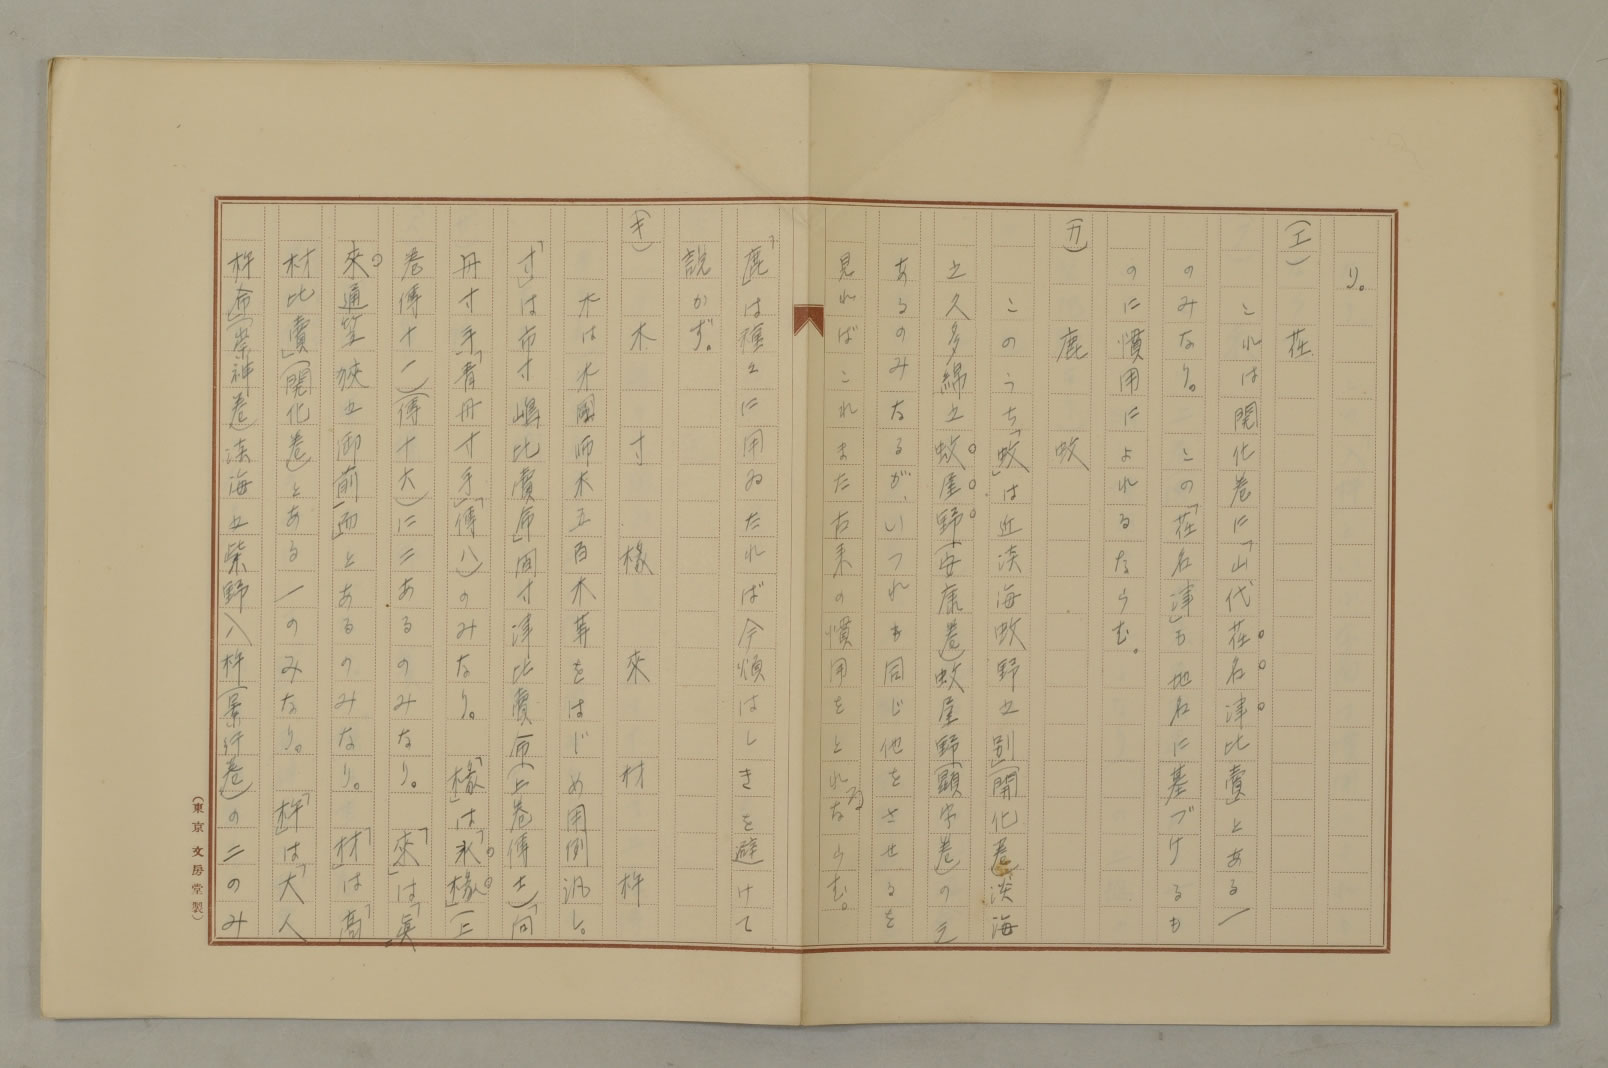 り。
(エ) 荏
これは開化卷に「山代荏名津比賣」とある一
のみなり。この「荏名津」も地名に基づけるも
のに慣用によれるならむ。
(カ) 鹿 蚊
このうち「蚊」は近淡海蚊野之別(開化卷)淡海
之久多綿之蚊屋野(安康卷)蚊屋野(顯宗卷)の三
あるのみなるが、いつれも同じ他をさせるを
見ればこれまた古来の慣用をとれるならむ。
「鹿」は種々に用ゐたれば今煩はしきを避けて
説かず。
(キ) 木 寸 椽 來 材 杵
木は木國 木 五百木 等をはじめ用例汎し。
「寸」は市寸嶋比賣命 間寸津比賣命(上卷傳 )「同
丹寸手」「青丹寸手」(傳八)のみなり。「椽」は「氷椽」(上
卷傳十一)(傳十六)に二あるのみなり。「來」は「眞
來通笠狹之御前」而」とあるのみなり。「材」は「高
材比賣」(開化卷)とある一のみなり。「杵」は「大入
杵命」(崇神卷)淡海之柴野入杵(景行卷)の二のみ
(東京 文房堂製)